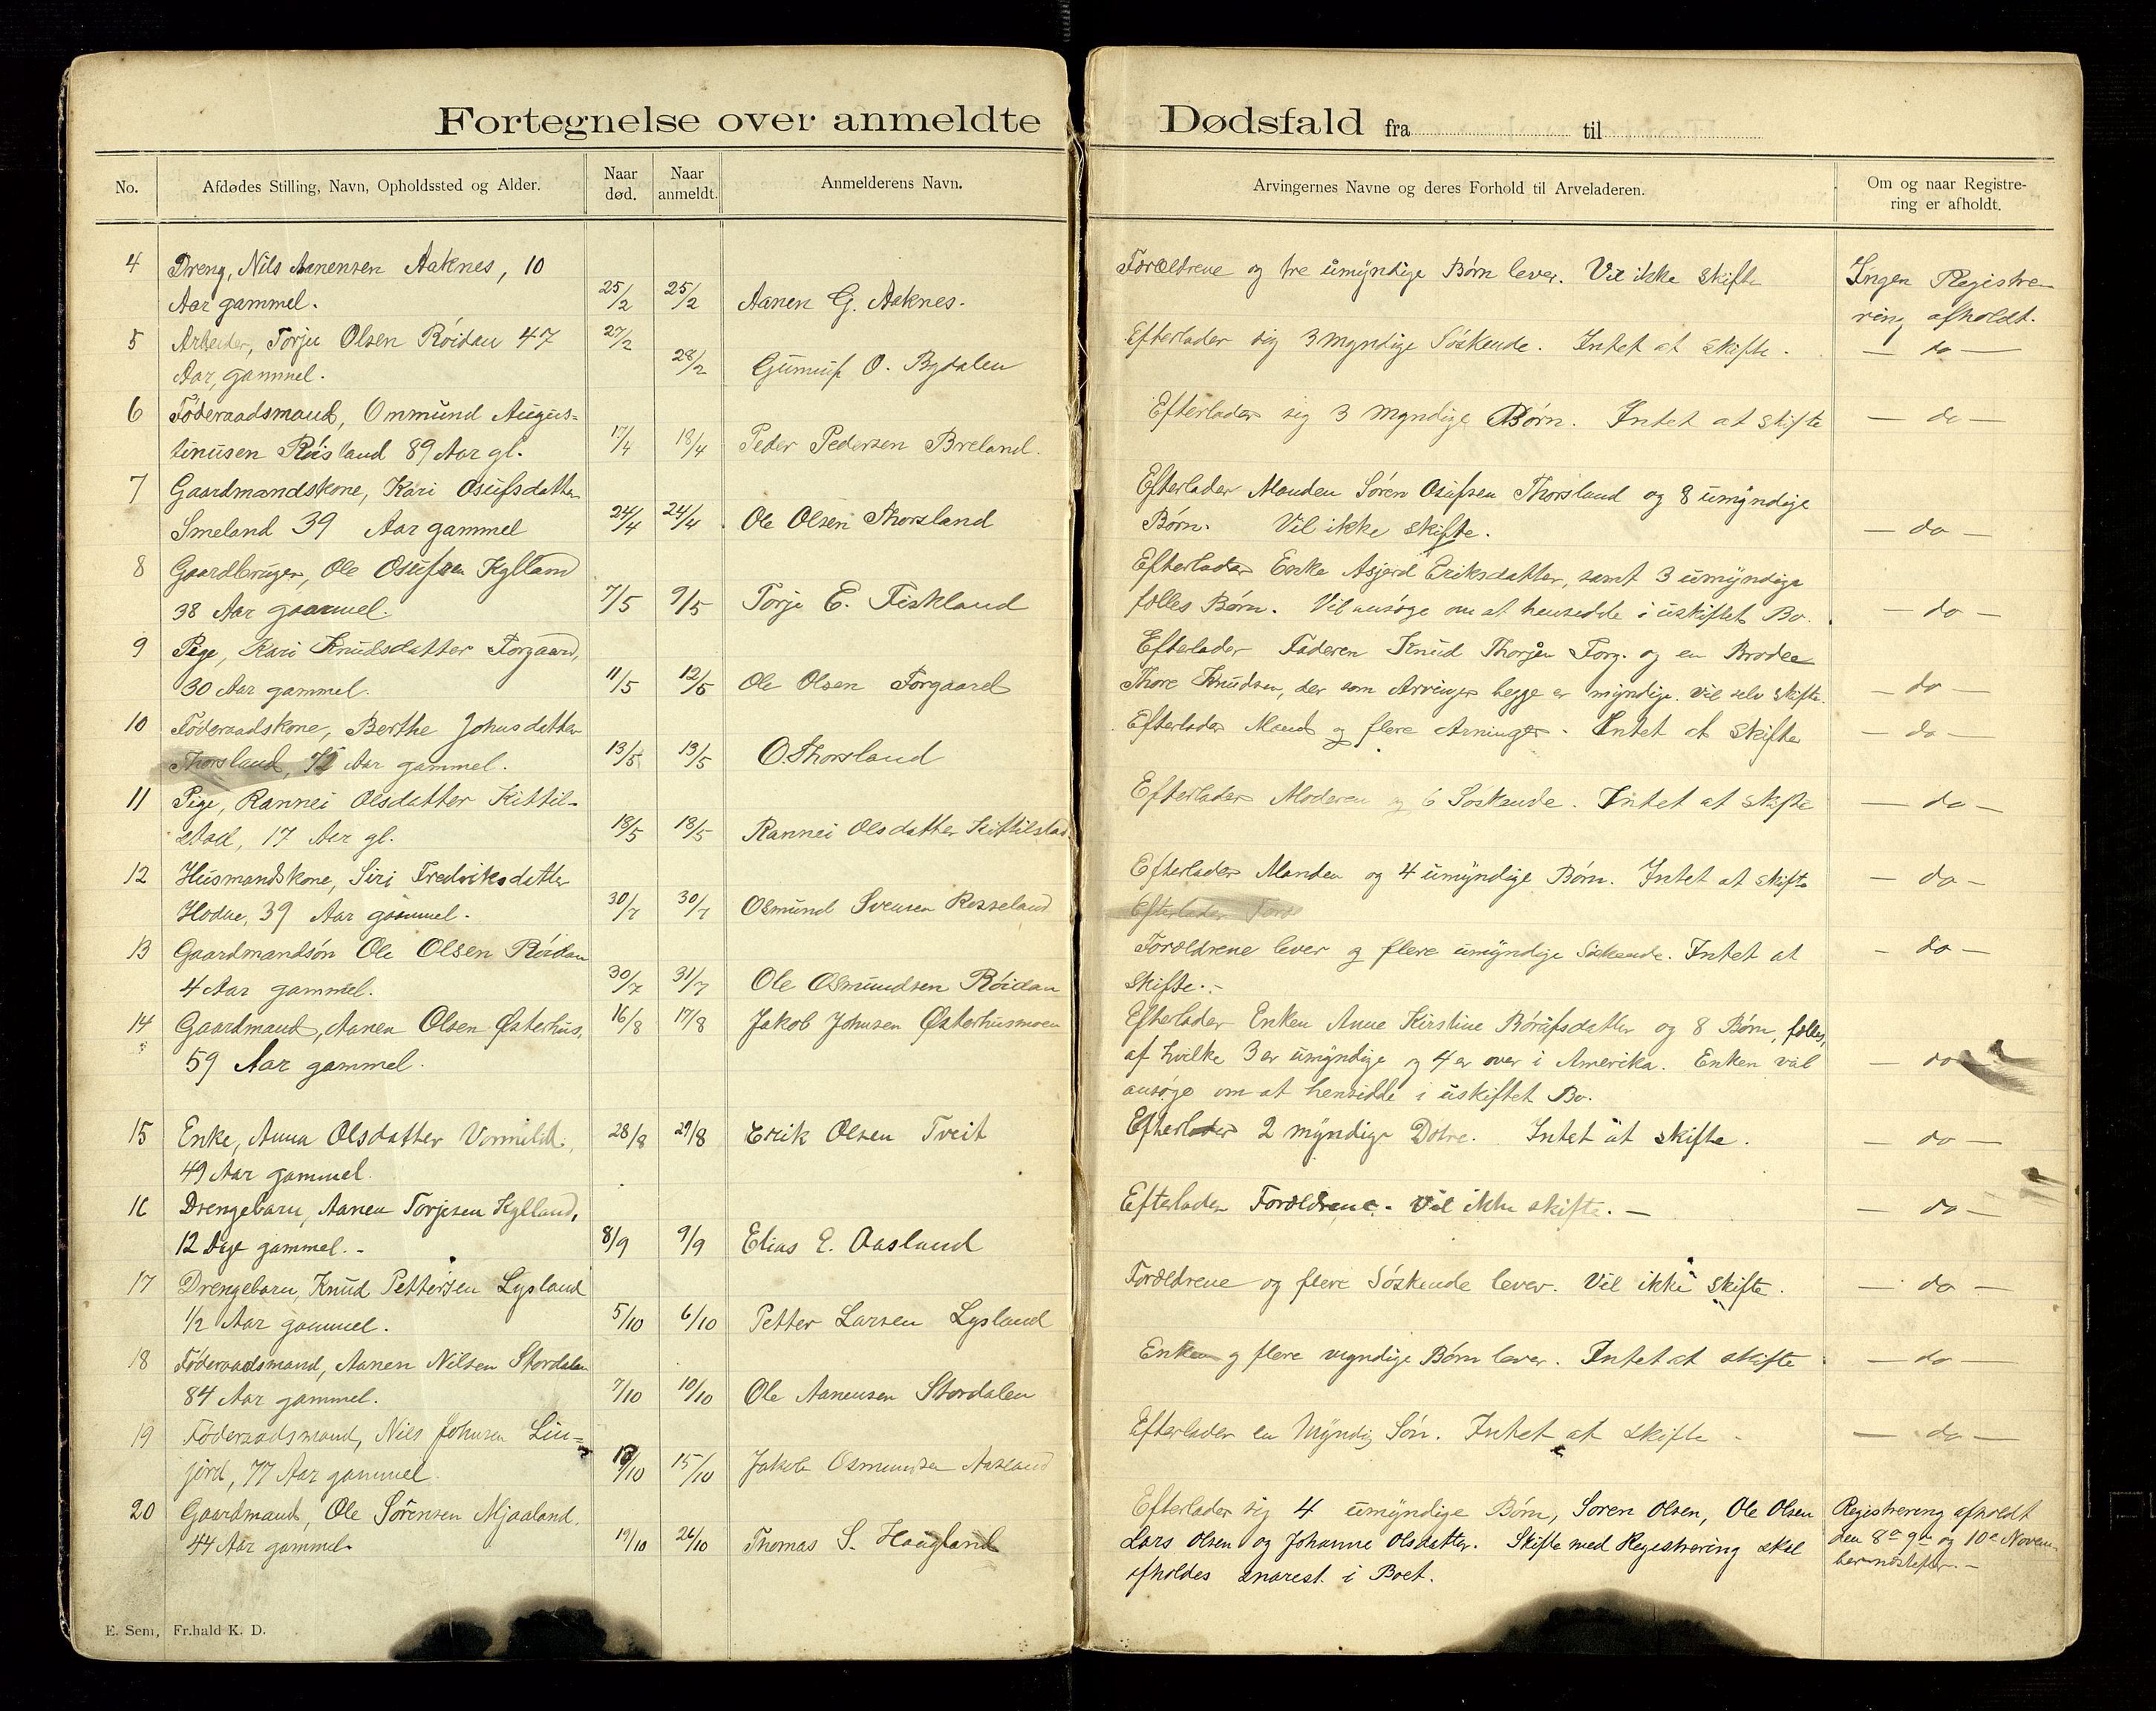 Fortegnelse over anmeldte Dødsfald fra til
No.
Afdødes Stilling, Navn, Opholdssted og Alder.
Naar død.
Naar anmeldt.
Anmelderens Navn.
Arvingernes Navne og deres Forhold til Arveladeren.
Om og naar Registre-
ring er afholdt.
4 Dreng, Nils Aanensen Aaknes, 10
Aar gammel. 25/2 25/2 Aanen G. Aaknes.
Forældrene og tre umyndige Børn lever. Vil ikke skifte
Ingen Registre-
ring afholdt.
5 Arbeider, Torju Olsen Röidan 47 27/2
Aar, gammel. 28/2 O. Bydalen
Efterlader sig 3 myndige Söskende. Intet at skifte.
— do —
6 Föderaadsmand, Ommund Augus=
tinusen Röisland 89 Aar gl. 17/4 18/4 Peder Pedersen Breland.
Efterlader sig 3 myndige Børn. Intet at skifte
— do —
7 Gaardmandskone, Kari Osufsdatter
Smeland 39 Aar gammel 24/4 24/4 Ole Olsen Thorsland
Efterlader Manden Sören Osufsen Thorsland og 8 umyndige
Børn. Vil ikke skifte.
— do —
8 Gaardbruger, Ole Osufsen Kylland
38 Aar gammel. 7/5 9/5 Torje E. Fiskland
Efterlader Enke Asjerd Eriksdatter, samt 3 umyndige
fælles Børn. Vil ansøge om at hensidde i uskiftet Bo.
— do —
9 Pige, Kari Knudsdatter Forgaard,
30 Aar gammel. 11/5 12/5 Ole Olsen Forgaard
Efterlader Faderen Knud Thorjen Forg. og en Broder
Thore Knudsen, der som Arvinger begge er myndige. Vil selv skifte.
— do —
10 Föderaadskone, Berthe Johnsdatter
Thorsland, 72 Aar gammel. 13/5 13/5 O. Thorsland
Efterlader Mand og flere Arvinger. Intet at skifte
— do —
11 Pige, Rannei Olsdatter Kittil-
stad, 17 Aar gl. 18/5 18/5 Rannei Olsdatter Kittilstad
Efterlader Moderen og 6 Söskende. Intet at skifte
— do —
12 Husmandskone, Siri Fredriksdatter
Hodne, 39 Aar gammel. 30/7 30/7 Osmund Svensen Rosseland
Efterlader Manden og 4 umyndige Børn. Intet at skifte
— do —
Efterlader
13 Gaardmandsön Ole Olsen Röidan
4 Aar gammel. 30/7 31/7 Ole Osmundsen Röidan
Forældrene lever og flere umyndige Söskende. Intet at
skifte.-
— do —
14 Gaardmand, Aanen Olsen Østerhus, 16/8 17/8 Jakob Johnsen Østerhusmoen
59 Aar gammel.
Efterlader Enken Anne Kirstine Börufsdatter og 8 Børn, fælles,
af hvilke 3 er umyndige og 4 er over i Amerika. Enken vil
ansøge om at hensidde i uskiftet Bo.
— do
15 Enke, Anna Olsdatter Vormelid, 28/8 29/8 Erik Olsen Tveit
49 Aar gammel.
Efterlader 2 myndige Dötre. Intet at skifte.
— do —
16 Drengebarn, Aanen Torjesen Kylland,
12 Dage gammel. - 8/9 9/9 Elias E. Aasland
Efterlader Forældrene. Vil ikke skifte. —
— do —
17 Drengebarn, Knud Pettersen Lysland
1/2 Aar gammel. 5/10 6/10 Petter Larsen Lysland
Forældrene og flere Söskende lever. Vil ikke skifte.
— do —
18 Föderaadsmand, Aanen Nilsen Stordalen
84 Aar gammel. 7/10 10/10 Ole Aanensen Stordalen
Enken og flere myndige Børn lever. Intet at skifte
— do —
19 Föderaadsmand, Nils Johnsen Lin=
jord, 77 Aar gammel. /10 15/10 Jakob Osmundsen Aasland
Efterlader en Myndig Sön. Intet at skifte -
— do —
20 Gaardmand, Ole Sörensen Mjaaland.
44 Aar gammel. 19/10 26/10 Thomas S. Haugland
Efterlader sig 4 umyndige Børn, Soren Olsen, Ole Olsen
Lars Olsen og Johanne Olsdatter. Skifte med Registrering skal
afholdes snarest i Boet.
Registrering afholdt
den 8de 9de og 10de Novem-
ber
E. Sem, Fr.hald K. D.